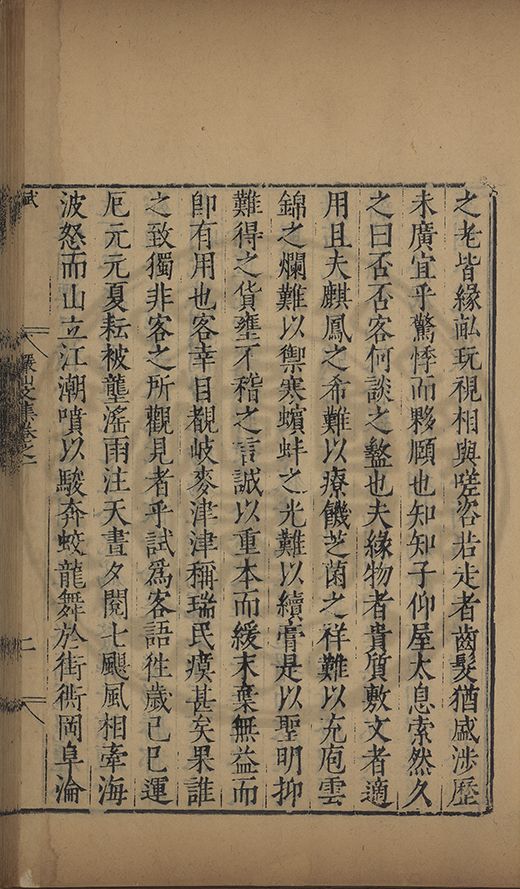 之老皆緣酏玩視相與嗟咨若走者齒髮猶盛涉歷
未廣宜乎驚悸而夥頤也知知子仰屋太息索然久
之曰否否客何談之盭也夫緣物者貴質敷文者適
用且夫麒鳳之希難以療饑芝菌之祥難以充庖雲
錦之爛難以禦寒蠙蚌之光難以續膏是以聖明抑
難得之貨壅不稽之言誠以重本而緩末棄無益而
卽有用也客幸目覩岐麥津津稱瑞民瘼甚矣果誰
之致獨非客之所觀見者乎試爲客語徃歲己巳運
厄元元夏耘被壟滛雨注天晝夕閱七颶風相牽海
波怒而山立江潮噴以駿奔蛟龍舞於街衖岡阜淪
賦
山文集卷之一
二